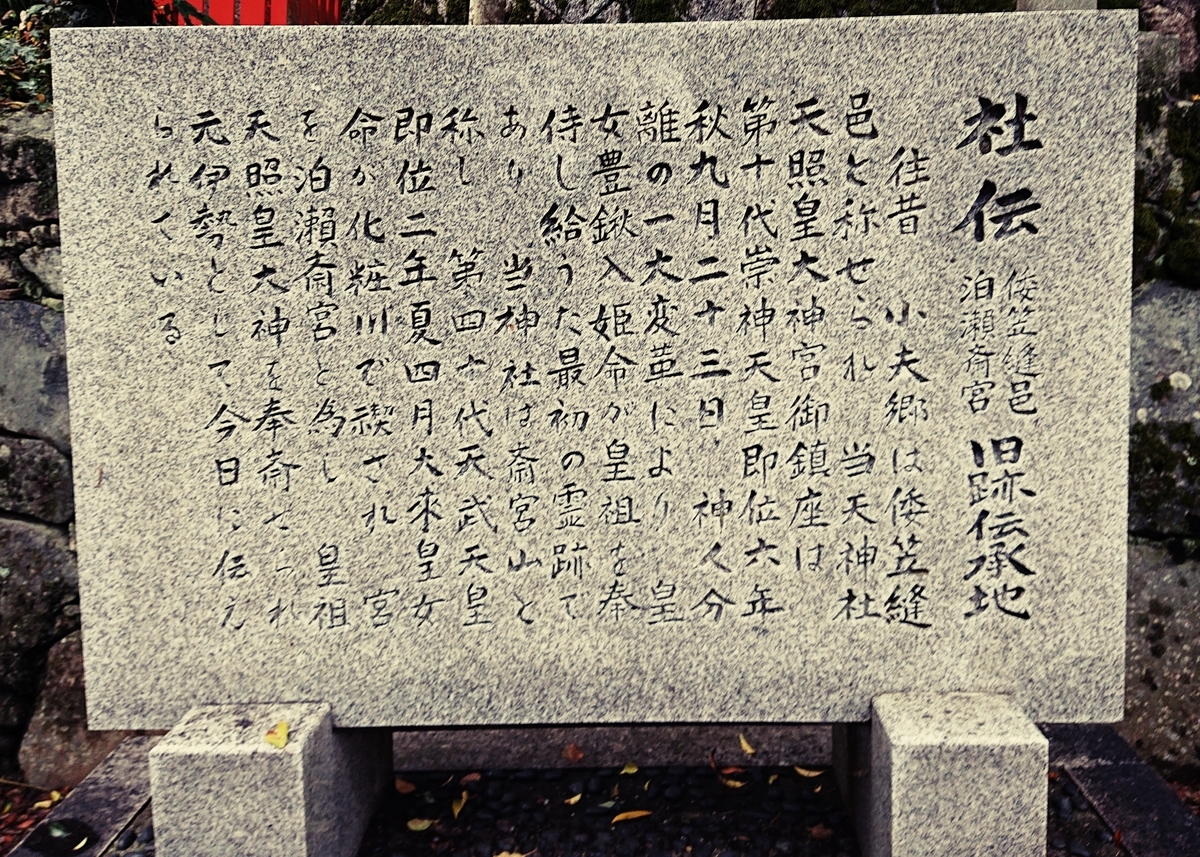 社伝 倭笠縫邑 泊瀬斎宮 旧跡伝承地
往昔 小夫郷は倭笠縫
邑と称せられ 当天神社
天照皇大神宮御鎮座は
第十代崇神天皇即位六年
秋九月二十三日 神人分
離の一大変革により 皇
女豊鍬入姫命が皇祖を奉
侍し給うた最初の霊跡で
あり 当神社は斎宮山と
称し 第四十代天武天皇
即位二年夏四月大來皇女
命が化粧川で禊され 宮
を泊瀬斎宮と為し 皇祖
天照皇大神を奉斎せられ
元伊勢として今日に伝え
られている